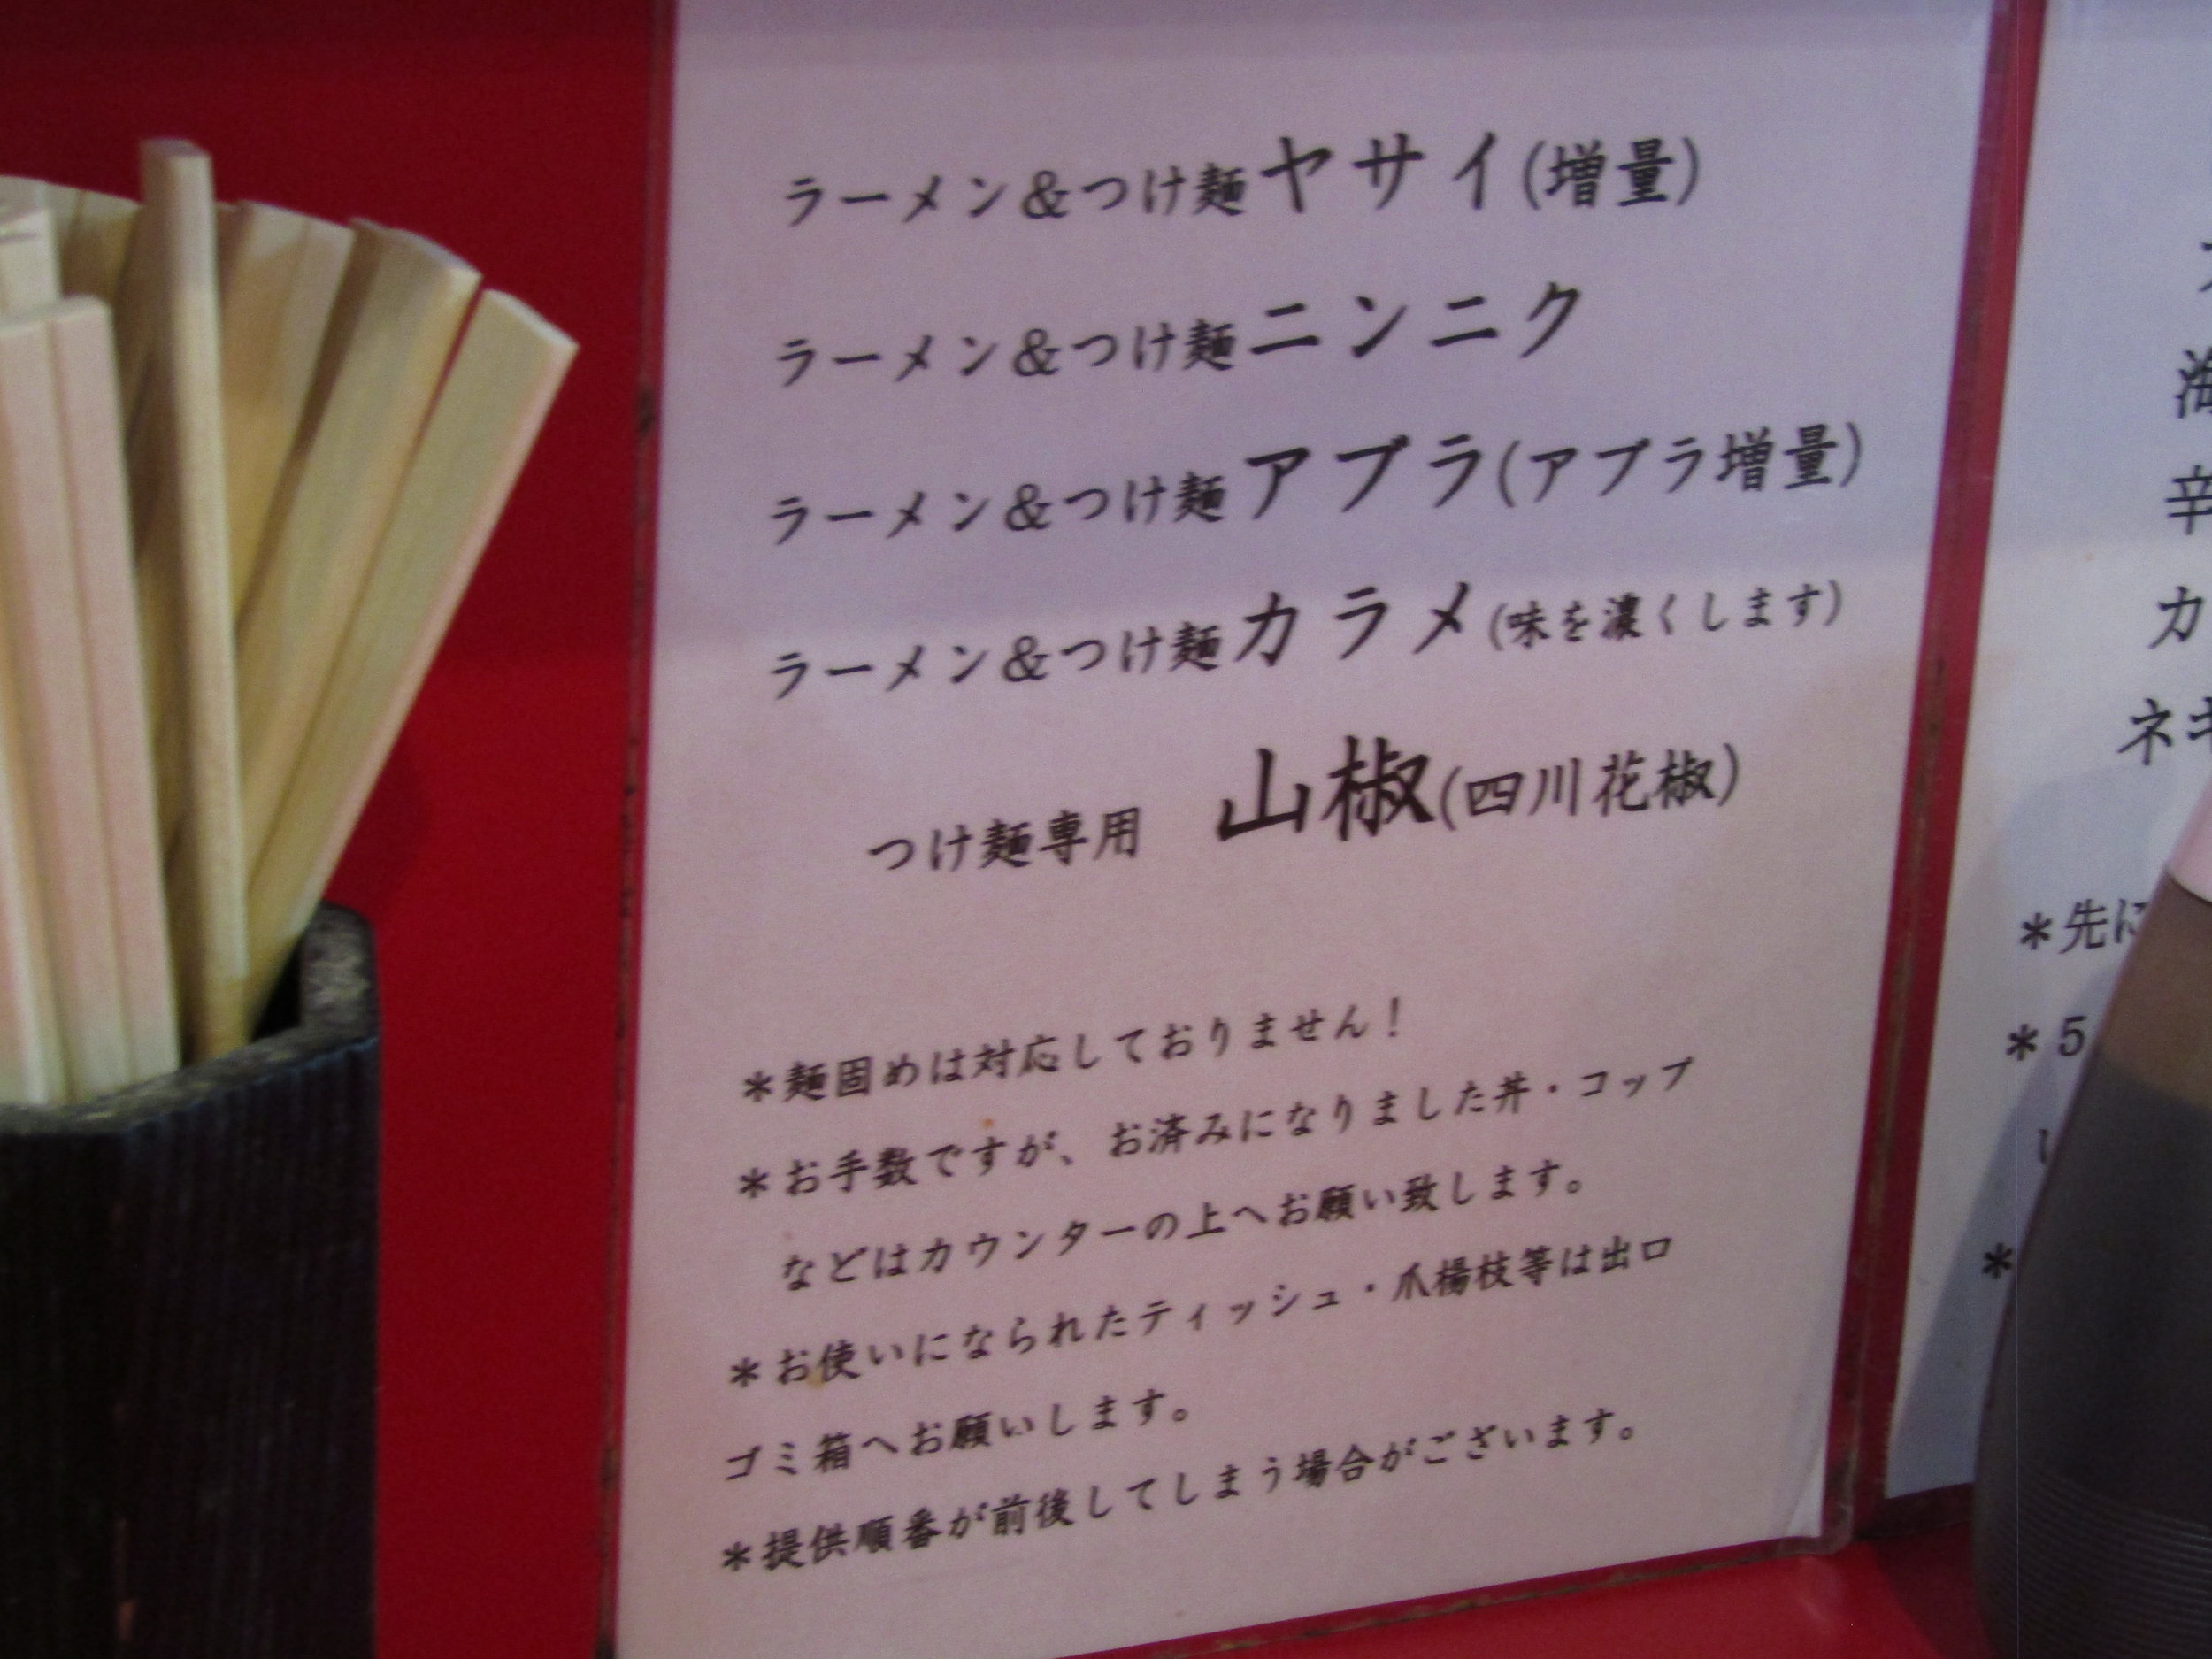 ラーメン&つけ麺ヤサイ(増量)
ラーメン&つけ麺ニンニク
ラーメン&つけ麺アブラ(アブラ増量)
ラーメン&つけ麺カラメ(味を濃くします)
つけ麺専用 山椒(四川花椒)
*麺固めは対応しておりません!
*お手数ですが、お済みになりました丼・コップ
などはカウンターの上へお願い致します。
*お使いになられたティッシュ・爪楊枝等は出口
ゴミ箱へお願いします。
*提供順番が前後してしまう場合がございます。
辛
カ
ネギ
*先に
*5
*